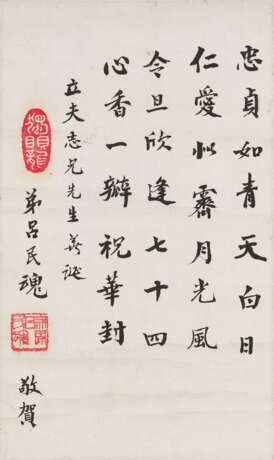 忠貞如青天白日
仁愛似霽月光風
令旦欣逢七十四
心香一瓣祝華封
立夫志兄先生華誕
弟呂民魂
敬賀